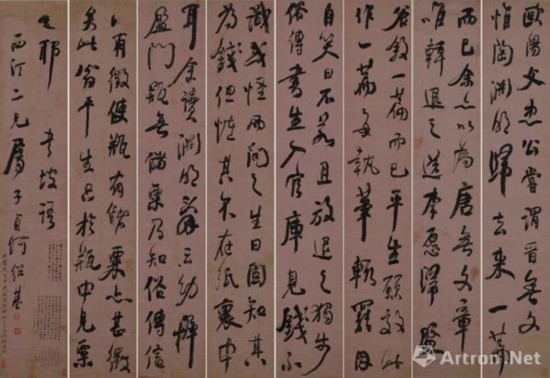 歐陽文忠公嘗謂晉無文
惟陶淵明歸去來一篇
而已余亦以為唐無文章
唯韓退之送李愿歸盤
谷敘一篇而已平生願效此
作一篇每執筆輒罷因
自笑曰不若且放退之獨步
俗傳書生入官庫見錢不
識或怪而問之生曰固知其
為錢但怪其不在紙裹中
耳余讀淵明辭云幼稚
盈門瓶無儲粟乃知俗傳信
有徵使瓶有儲粟亦甚微
矣此翁平生只於瓶中見粟
也耶 書坡語
西汀二兄屬 子貞何紹基
Artron.Net